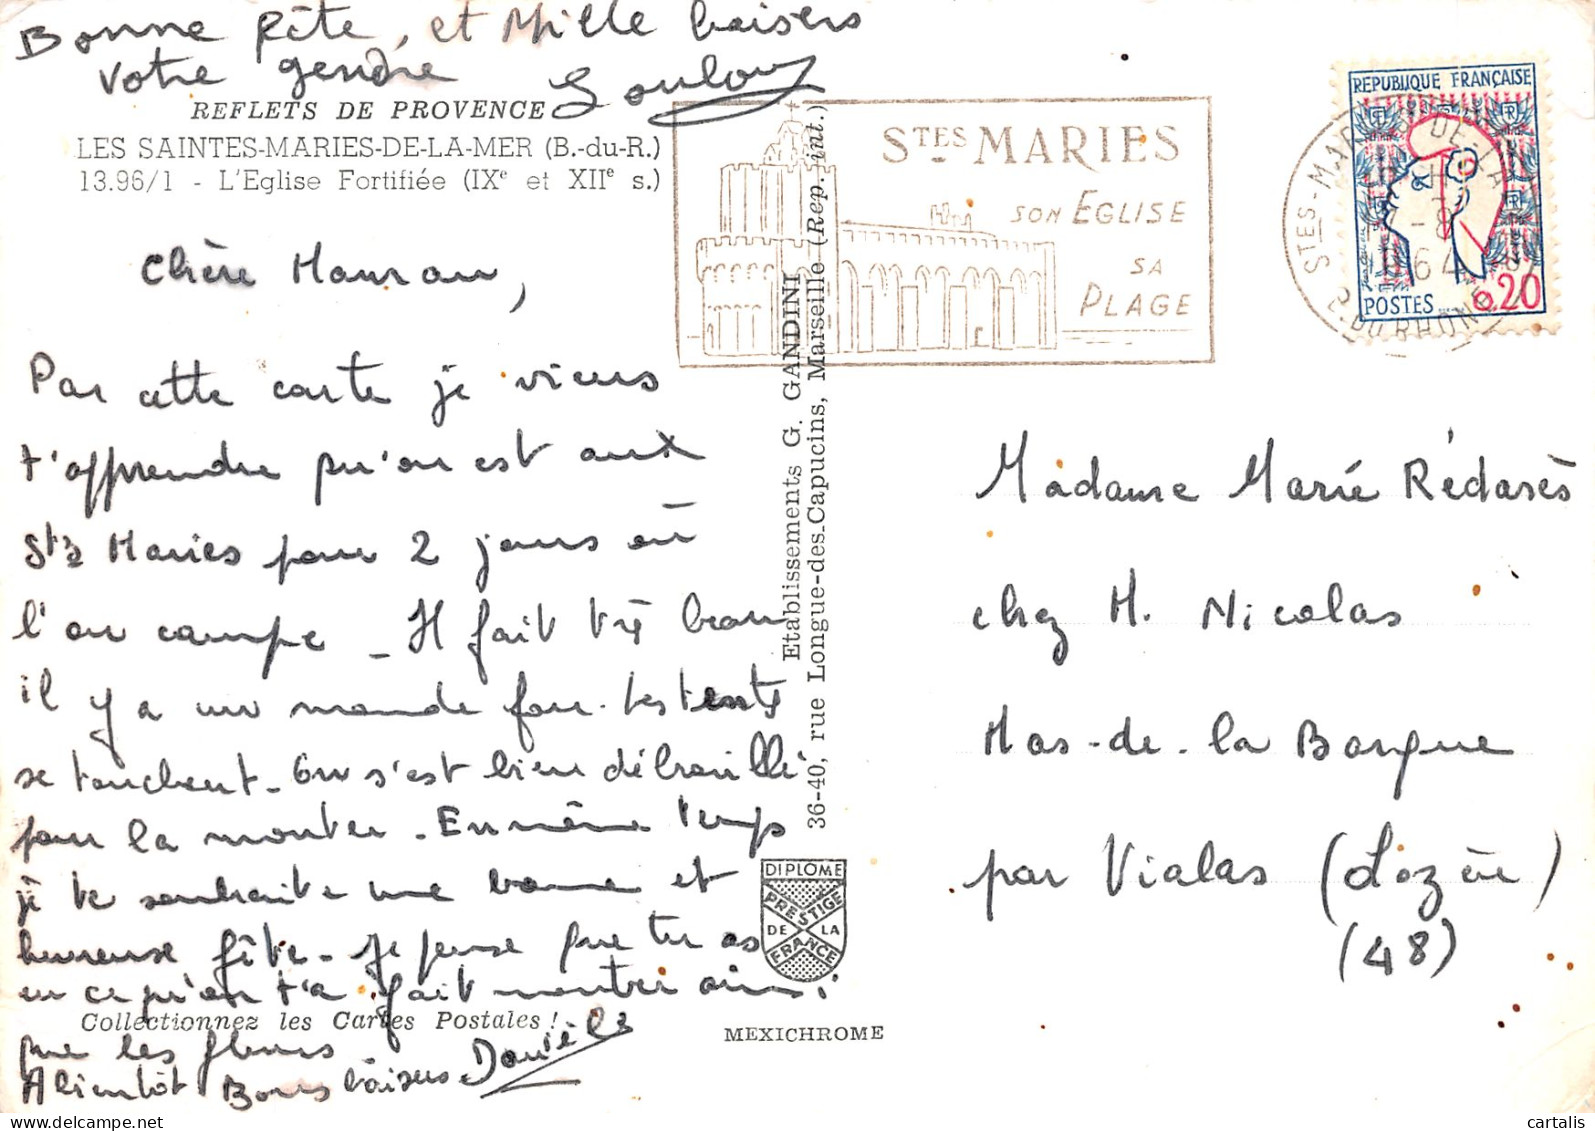 Bonne fête, et Mille baisers
votre gendre
REFLETS DE PROVENCE
LES SAINTES-MARIES-DE-LA-MER (B.-du-R.)
13.96/1 - L'Eglise Fortifiée (IXe et XIIe s.)
Chère Maman,
Par cette carte je viens
t'apprendre qu'on est aux
Stes Maries pour 2 jours où
l'on campe - Il fait très beau
il y a un monde fou. les tentes
se touchent - On s'est bien débrouillé
pour la monter. En même temps
je te souhaite une bonne et
heureuse fête - Je pense que tu as
eu ce qu'on t'a fait
Collectionnez les Cartes Postales !
que les fleurs.
A bientôt Bons baisers Danièle
Etablissements G. GANDINI
36-40, rue Longue-des-Capucins, Marseille (Rep. int.)
DIPLOME
PRESTIGE
DE LA
FRANCE
MEXICHROME
STES MARIES
SON EGLISE
SA
PLAGE
STES-MARIES-DE-LA
B. DU RHONE
REPUBLIQUE FRANÇAISE
RF
POSTES
0,20
Madame Marie Rédarès
chez M. Nicolas
Mas-de-la Barque
par Vialas (Lozère)
(48)
cartalis
www.delcampe.net